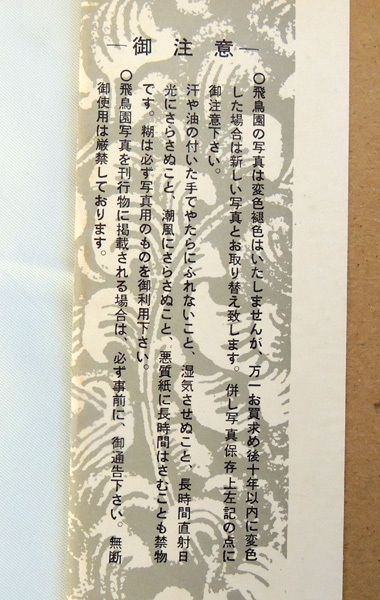 御注意
○飛鳥園の写真は変色褪色はいたしませんが、万一お買求め後十年以内に変色
した場合は新しい写真とお取り替え致します。併し写真保存上左記の点に
御注意下さい。
汗や油の付いた手でやたらにふれないこと、湿気させぬこと、長時間直射日
光にさらさぬこと、潮風にさらさぬこと、悪質紙に長時間はさむことも禁物
です。糊は必ず写真用のものを御利用下さい。
○飛鳥園写真を刊行物に掲載される場合は、必ず事前に、御通告下さい。無断
御使用は厳禁しております。